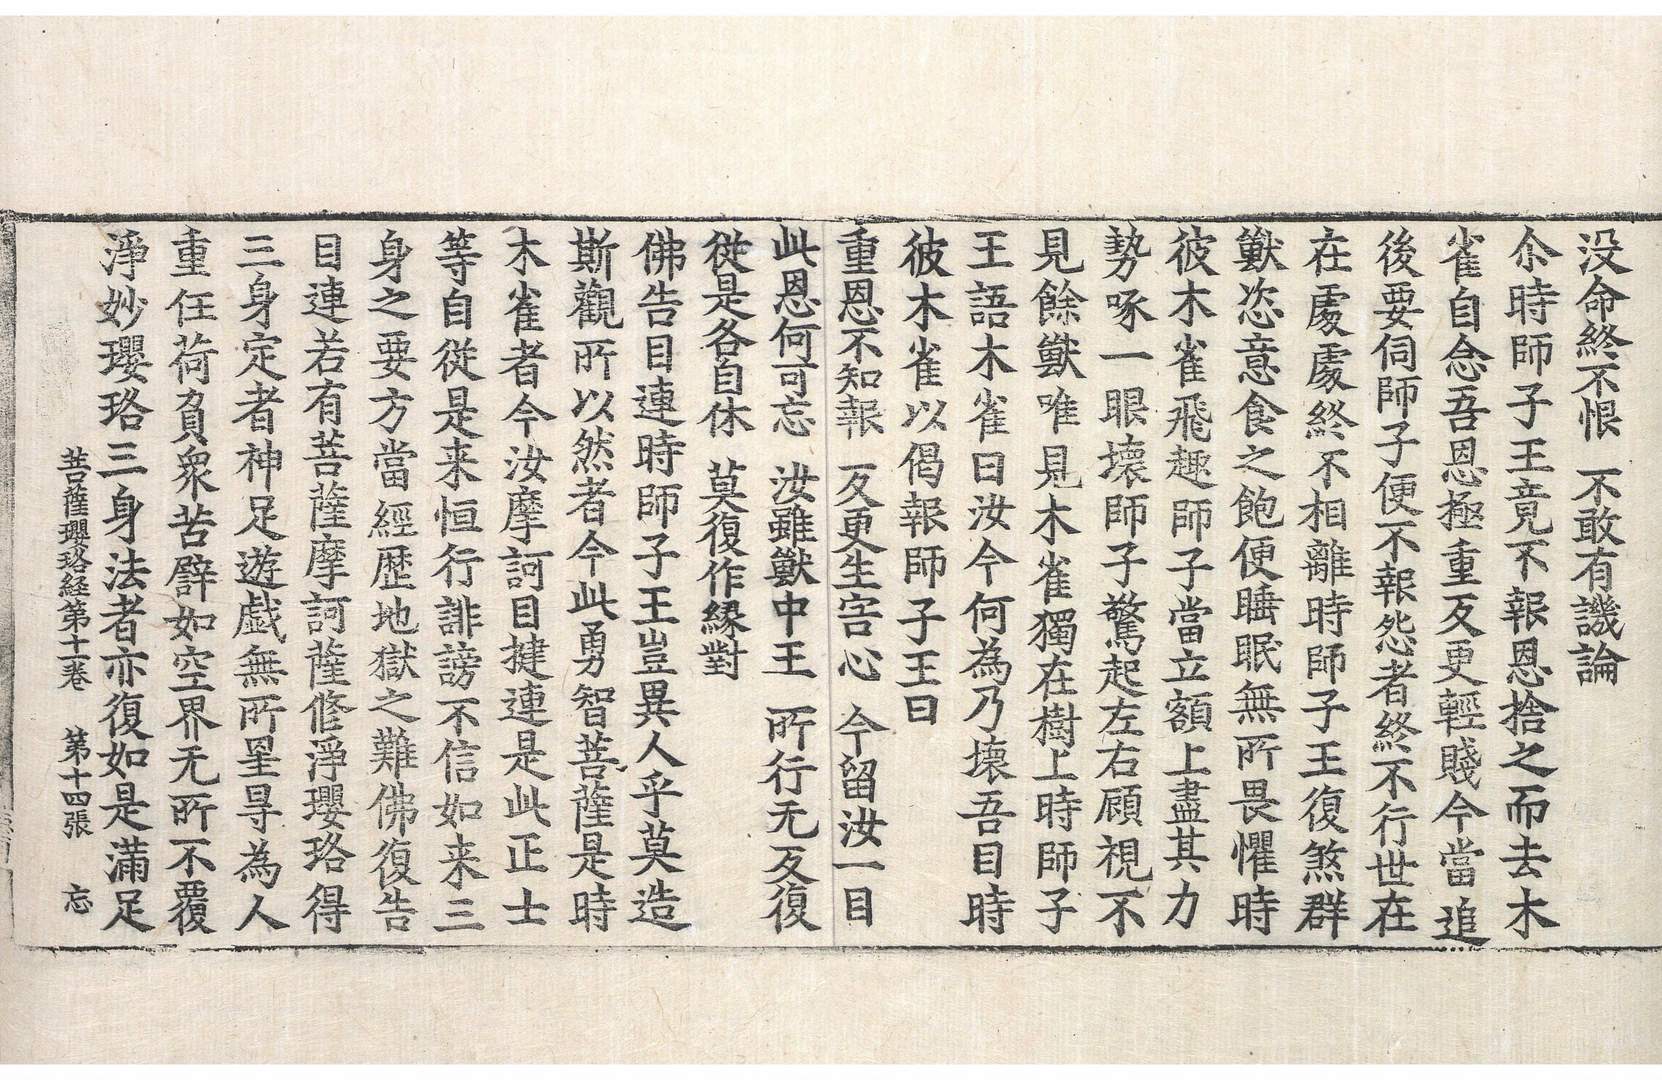 没命終不恨　不敢有譏論
尒時師子王竟不報恩捨之而去木
雀自念吾恩極重反更輕賤今當追
後要伺師子便不報怨者終不行世在
在處處終不相離時師子王復煞群
獸恣意食之飽便睡眠無所畏懼時
彼木雀飛趣師子當立額上盡其力
勢啄一眼壞師子驚起左右顧視不
見餘獸唯見木雀獨在樹上時師子
王語木雀曰汝今何為乃壞吾目時
彼木雀以偈報師子王曰
重恩不知報　反更生害心　今留汝一目
此恩何可忘　汝雖獸中王　所行无反復
從是各自休　莫復作緣對
佛告目連時師子王豈異人乎莫造
斯觀所以然者今此勇智菩薩是時
木雀者今汝摩訶目揵連是此正士
等自從是来恒行誹謗不信如来三
身之要方當經歷地獄之難佛復告
目連若有菩薩摩訶薩修淨瓔珞得
三身定者神足遊戲無所罣导為人
重任荷負衆苦譬如空界无所不覆
淨妙瓔珞三身法者亦復如是滿足
菩薩瓔珞経第十一卷　第十四張　忘